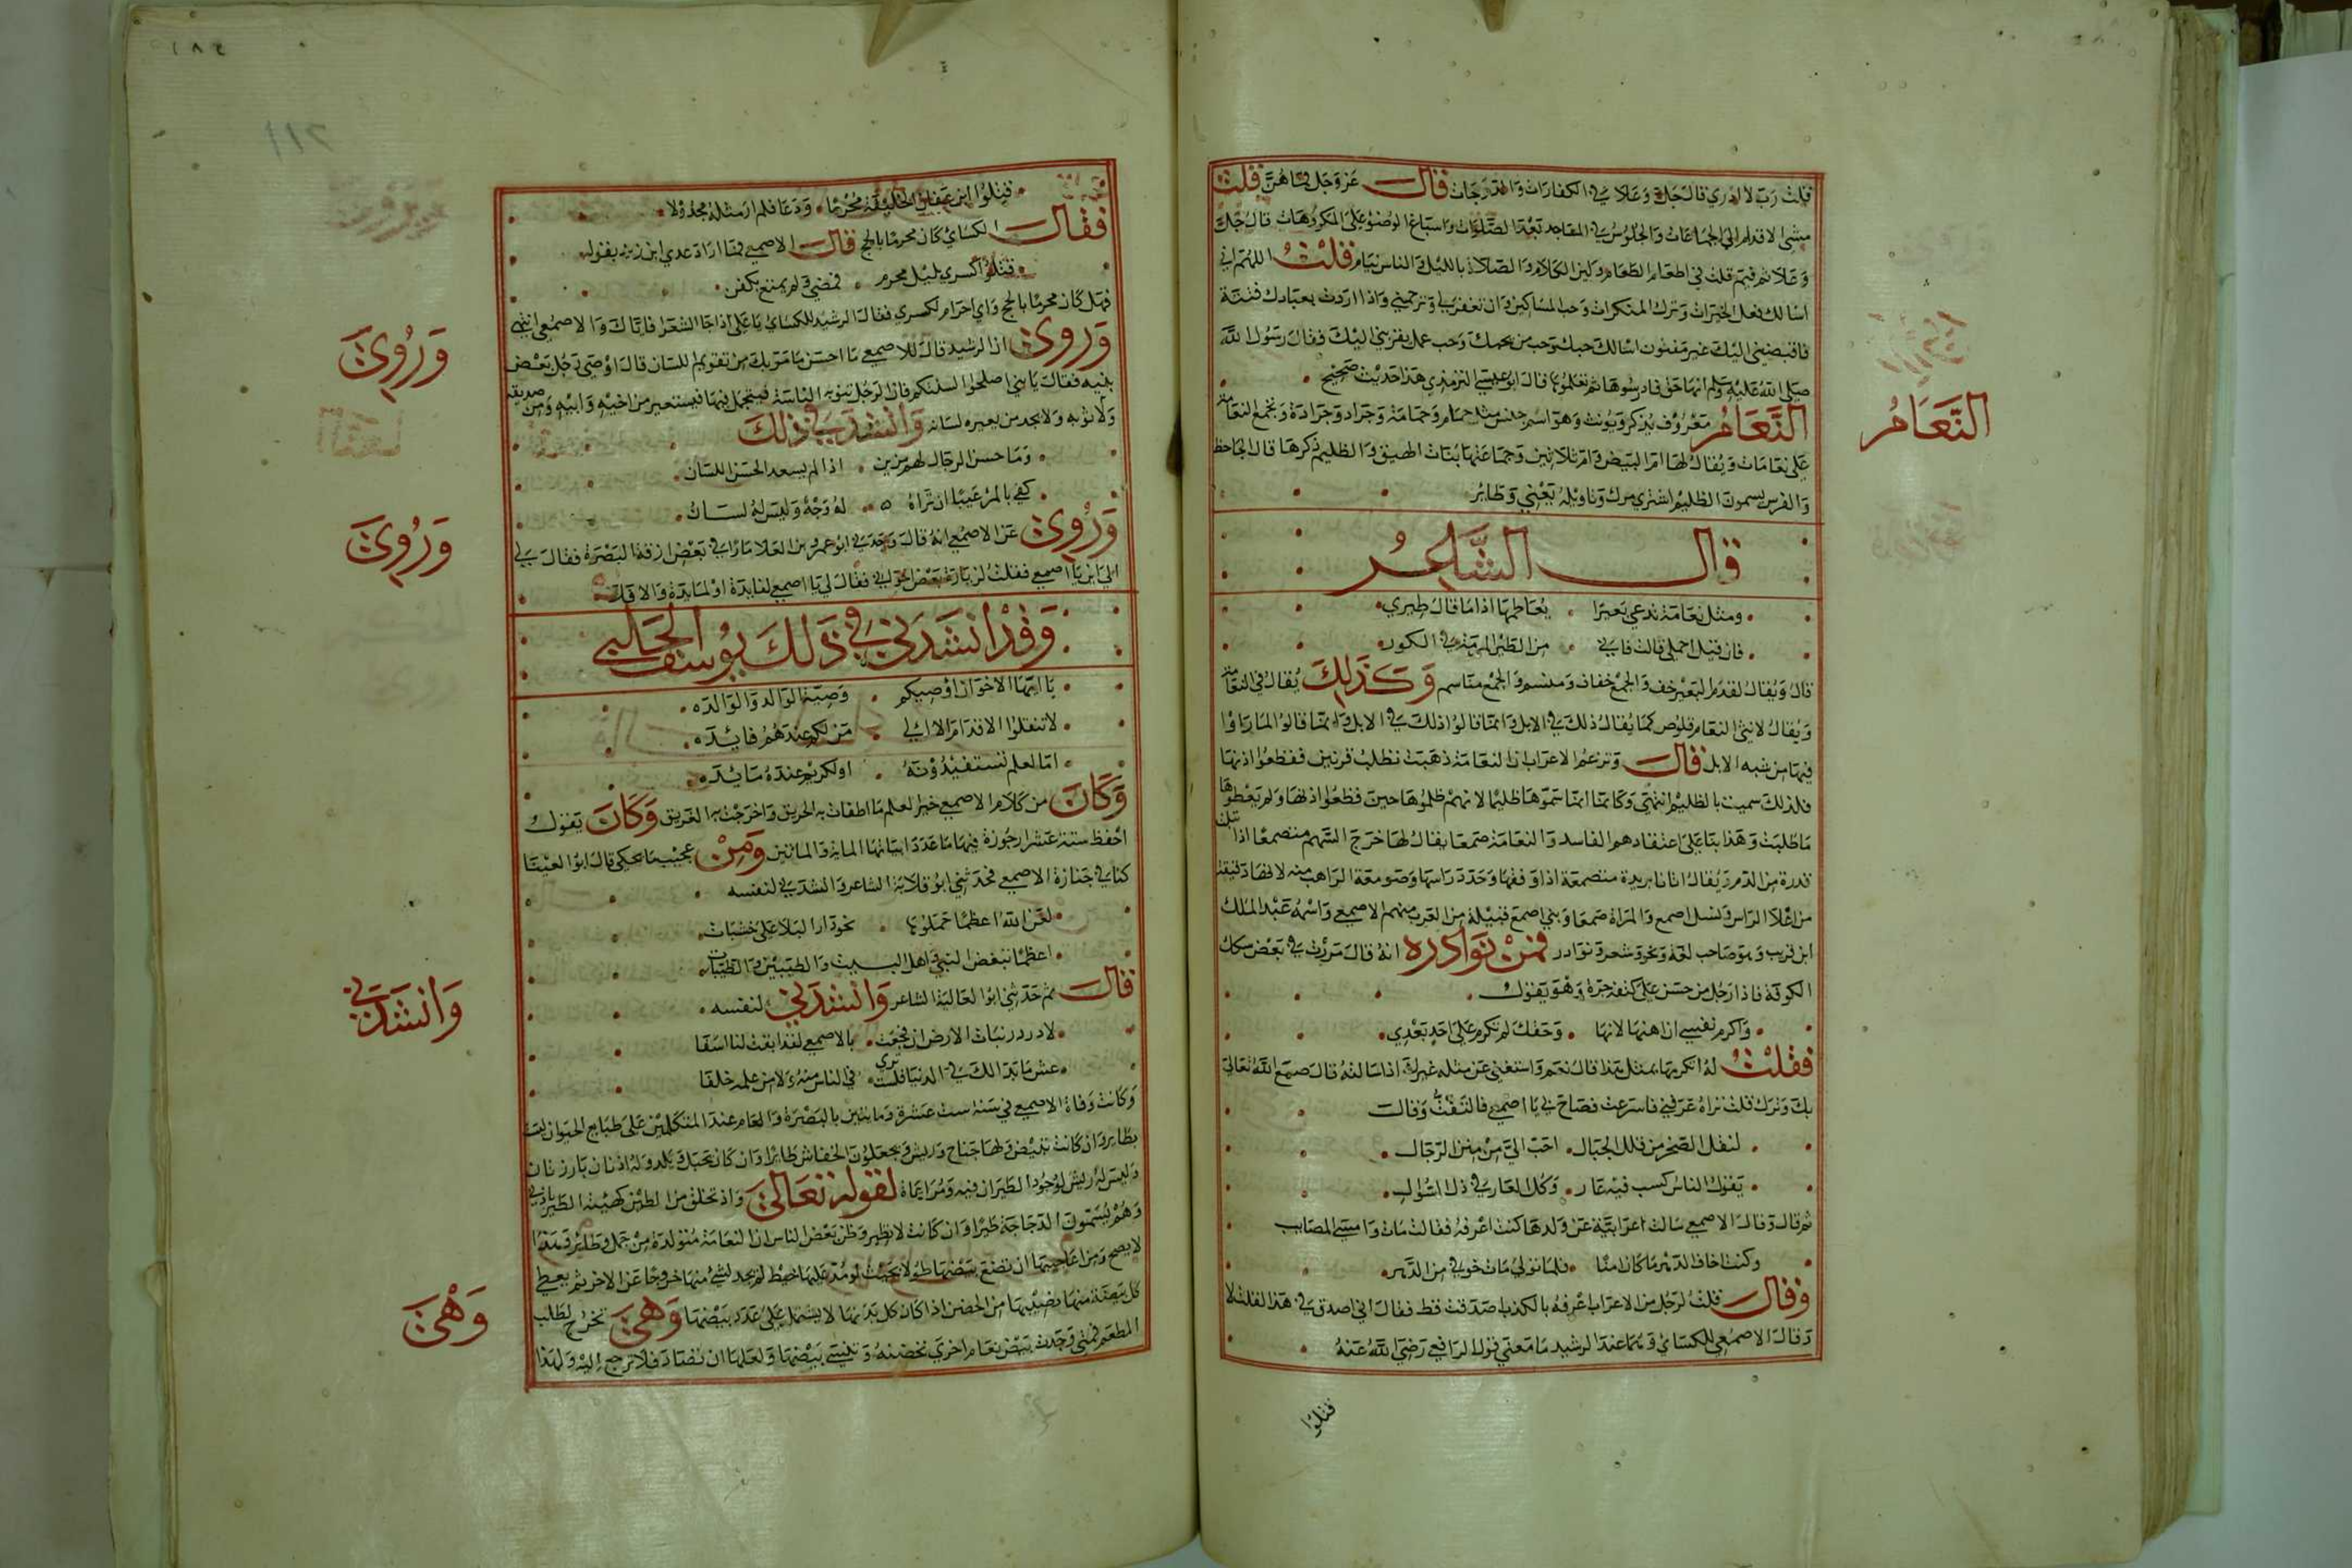 قلت رب لا ادري قال جل وعلا في الكفارات والدرجات قال عز وجل فما هن قلت
مشي الاقدام الي الجماعات والجلوس في المساجد بعد الصلوات واسباغ الوضو على المكروهات قال جل
وعلا ثم فيم قلت في اطعام الطعام ولين الكلام والصلاة بالليل والناس نيام فقلت اللهم اني
اسالك فعل الخيرات وترك المنكرات وحب المساكين وان تغفر لي وترحمني واذا اردت بعبادك فتنة
فاقبضني اليك غير مفتون اسالك حبك وحب من يحبك وحب عمل يقربني اليك فقال رسول الله
صلي الله عليه وسلم انها حق فادرسوها ثم تعلموها قال ابو عيسي الترمذي هذا حديث صحيح
النعام معروف يذكر ويونث وهو اسم جنس مثل حمام وحمامة وجراد وجرادة وتجمع النعامة
النعام
على نعامات ويقال لها ام البيض وام ثلاثين وجماعتها بنات الهيق والظليم ذكرها قال الجاحظ
والفرس يسمون الظليم اشتري مرك وتاويله بعير وطاير
قال الشاعر
ومثل نعامة تدعي بعيرا . يعاظمها اذا ما قال طيري
فان قيل احملي قالت فاني . من الطير المربة في الوكور
قال ويقال لقدم البعير خف والجمع خفاف ومنسم والجمع مناسم وكذلك يقال في النعامة
ويقال لانثي النعام قلوص كما يقال ذلك في الابل وانما قالوا ذلك في الابل وانما قالوا لما راوا
فيها من شبه الابل قال وتزعم الاعراب ان النعامة ذهبت تطلب قرنين فقطعوا اذنها
فلذلك سميت بالظليم انتهي وكانما انما سموها ظليما لانهم ظلموها حين قطعوا اذنها ولم يعطوها
ما طلبت وهذا بنا على اعتقادهم الفاسد والنعامة صمعا يقال لها خرج السهم منصمعا اذا ابتلت
قذذه من الدم ويقال اتانا بثريدة منصمعة اذا وقفها وحدد راسها وصومعة الراهب منه لانها دقيقة
من اعلا الراس ورجل اصمع والمراة صمعا وبني اصمع قبيلة من العرب منهم الاصمعي واسمه عبد الملك
ابن قريب وهو صاحب لغة ونحو وشعر ونوادر فمن نوادره انه قال مررت في بعض سكك
الكوفة فاذا رجل من حسن على كتفه جرة وهو يقول
واكرم نفسي ان اهنها لانها . وحقك لم تكرم على احد بعدي
فقلت له اتكرمها بمثل هذا قال نعم واستغني عن مثلك غيرك اذا سالته قال صمع الله تعالي
بك وترك فلت تراه عرفني فاسرعت فصاح بي يا اصمعي فالتفت وقال
لنقل الصخر من قلل الجبال . احب الي من منن الرجال
يقول الناس كسب فيه عار . وكل العار في ذل السوال
ثم قال وقال الاصمعي سالت اعرابية عن ولدها كنت اعرفه فقالت مات وامسي المصايب
وكنت اخاف الدهر ما كان امنا . فلما تولي مات خوفي من الدهر
وقال قلت لرجل من الاعراب اعرفه بالكذب اصدقت قط فقال اني اصدق في هذا لقلت لا
وقال الاصمعي للكسائي وهما عند الرشيد ما معني قول الراعي رضي الله عنه
قتلوا
قتلوا ابن عفان الخليفة محرما . ودعا فلم ار مثله مخذولا
فقال الكسائي كان محرما بالحج قال الاصمعي فما اراد عدي ابن زيد بقوله
قتلوا كسري بليل محرم . فمضي ولم يمتع بكفن
فهل كان محرما بالحج واي احرام لكسري فقال الرشيد للكسائي يا علي اذا جا الشعر فاياك والاصمعي انتهي
وروي ان الرشيد قال للاصمعي ما احسن ما مر بك من تقويم اللسان قال اوصي رجل بعض
وروي
بنيه فقال يا بني اصلحوا السنتكم فان الرجل تنوبه النايبة فيتجمل فيها فيستعير من اخيه وابيه ومن صديقه
ولا ثوبه ولا يجد من يعيره لسانه وانشد في ذلك
وما حسن الرجال لهم بزين . اذا لم يسعد الحسن اللسان
كفي بالمر عيبا ان تراه . له وجه وليس له لسان
وروي عن الاصمعي انه قال وجدني ابو عمرو بن العلا مارا في بعض ازقة البصرة فقال لي
وروي
الي اين يا اصمعي فقلت لزيارة بعض اخواني فقال لي يا اصمعي لفايدة او لمايدة والا فلا
وقد انشدني في ذلك يوسف الحلبي
يا ايها الاخوان اوصيكم . وصية الوالد والوالده
لا تنقلوا الاقدام الا الي . من لكم عندهم فائده
اما لعلم تستفيدونه . او لكريم عنده مائده
وكان من كلام الاصمعي خير العلم ما اطفات به الحريق واخرجت به الغريق وكان يقول
احفظ ستة عشر ارجوزة فيها ما عدد ابياتها الماية والمايتين ومن عجيب ما يحكي قال ابو العينا
كنا في جنازة الاصمعي فحدثني ابو قلابة الشاعر وانشدني لنفسه
لعن الله اعظما حملوها . نحو دار البلا على خشبات
اعظما تبغض النبي واهل البيت والطيبين والطيبات
قال ثم حدثني ابو العالية الشاعر وانشدني لنفسه
وانشدني
لا در در نبات الارض ان فجعت . بالاصمعي لقد ابقت لنا اسفا
عش ما بدا لك في الدنيا فلست تري . في الناس منه ولا من علمه خلفا
وكانت وفاة الاصمعي في سنة ست عشرة ومايتين بالبصرة والنعام عند المتكلمين على طبايع الحيوان ليت
بطاير وان كانت تبيض ولها جناح وريش ويجعلون الخفاش طايرا وان كان يحبل ويلد وله اذنان بارزتان
وليس له ريش لوجود الطيران فيه ومراعاة لقوله تعالي واذ تخلق من الطين كهيئة الطير باذني
وهم يسمون الدجاجة طيرا وان كانت لا تطير وظن بعض الناس ان النعامة متولدة من جمل وطائر وهذا
لا يصح ومن اعاجيبها ان تضع بيضها طولا بحيث لو مد عليها خيط لم يجد لشي منها خروجا عن الاخر ثم يعطي
كل بيضة منها نصيبها من الحضن اذا كان كل بدنها لا يشتمل على عدد بيضها وهي تخرج لطلب
وهي
المطعم فمتي وجدت بيض نعام اخري تحضنه وتنسي بيضها ولعلها ان تصاد فلا ترجع اليه ولهذا